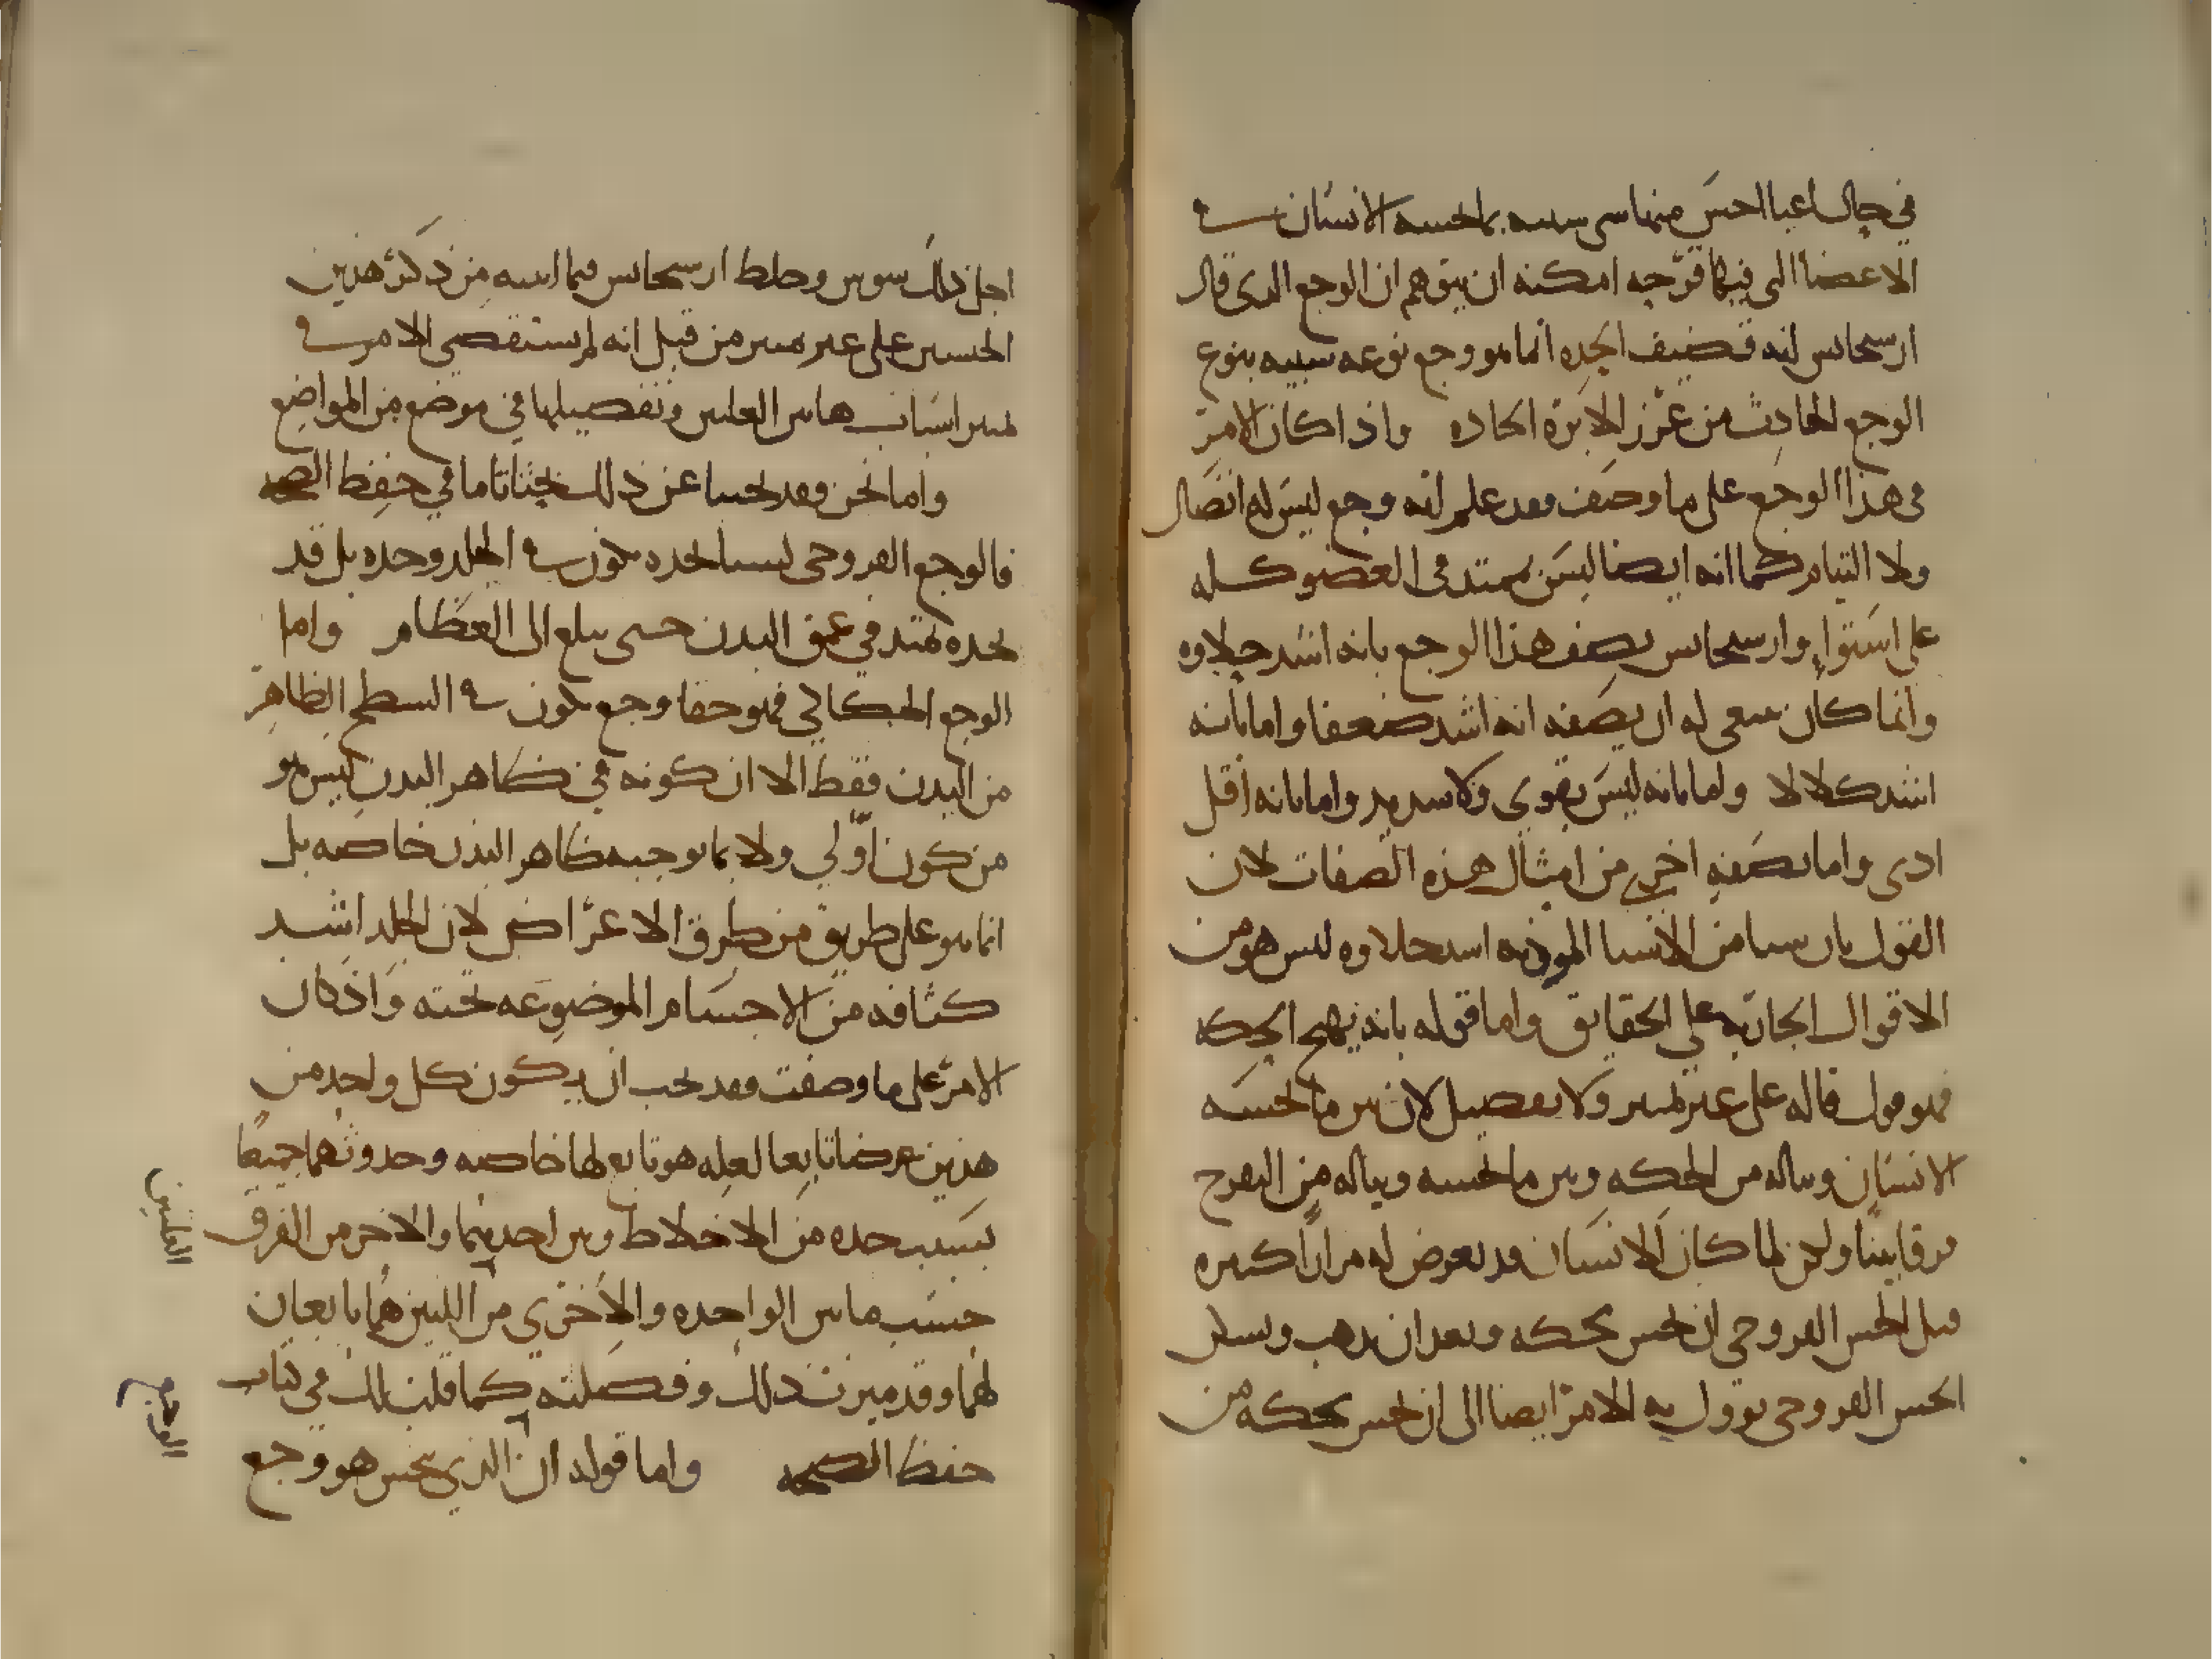 في حال اعيا احس منها سى سبيه بما يحسه الانسان في
الاعضا التي فيها قرحه امكنه ان يتوهم ان الوجع الدى قال
ارسحانس انه قضيف الحده انما هو وجع نوعه شبيه بنوع
الوجع الحادث من غرز الابرة الحاده واذا كان الامر
في هذا الوجع على ما وصف فقد علم انه وجع ليس له اتصال
ولا التيام كما انه ايضا ليس يمتد في العضو كله
على استواء وارسحانس يصف هذا الوجع بانه اشد حلاوه
وانما كان ينبغي له ان يصفه انه اشد ضعفا واما بانه
اشد كلالا واما بانه ليس بقوي ولا شديد واما بانه اقل
ادى واما بصفه اخري من امثال هذه الصفات لان
القول بان شيا من الاشيا الموذيه اشد حلاوه ليس هو من
الاقوال الجاريه علي الحقايق واما قوله بانه يهيج الحكه
فهو قول قاله على غير تمييز ولا تفصيل لان بين ما يحسه
الانسان ويناله من الحكه وبين ما يحسه ويناله من التقرح
فرقا بينا ولكن لما كان الانسان قد يعرض له مرارا كثيره
قبل الحس القروحي ان يحس بحكه وبعد ان يذهب ويسكن
الحس القروحي يوول به الامر ايضا الى ان يحس بحكه من
اجل ذلك سوس وخلط ارسحانس فيما اثبته من ذكره هذين
الحسين على غير تمييز من قبل انه لم يستقصي الامر في
تمييز اسباب هاتين العلتين وتفصيلها في موضع من المواضع
واما نحن فقد بحثنا عن ذلك بحثا تاما في حفظ الصحه
فالوجع القروحي لسنا نجده يكون في الجلد وحده بل قد
نجده يمتد في عمق البدن حتى يبلغ الى العظام واما
الوجع الحكاكي فهو حقا وجع يكون في السطح الظاهر
من البدن فقط الا ان كونه في ظاهر البدن ليس هو
من كون اولي ولا بما يوجبه ظاهر البدن خاصه بل
انما هو على طريق من طرق الاعراض لان الجلد اشد
كثافه من الاجسام الموضوعه تحته واذ كان
الامر على ما وصفت فقد يجب ان يكون كل واحد من
هذين عرضا تابعا لعله هو تابع لها خاصه وحدوثهما جميعا
بسبب حده من الاخلاط وبين احديهما والاخر من الفرق
حسب ما بين الواحده والاخري من اللتين هما تابعان
العلتين
لهما وقد ميزت ذلك وفصلته كما قلت لك في كتاب
حفظ الصحه واما قوله ان الذي يحس هو وجع
الوجع